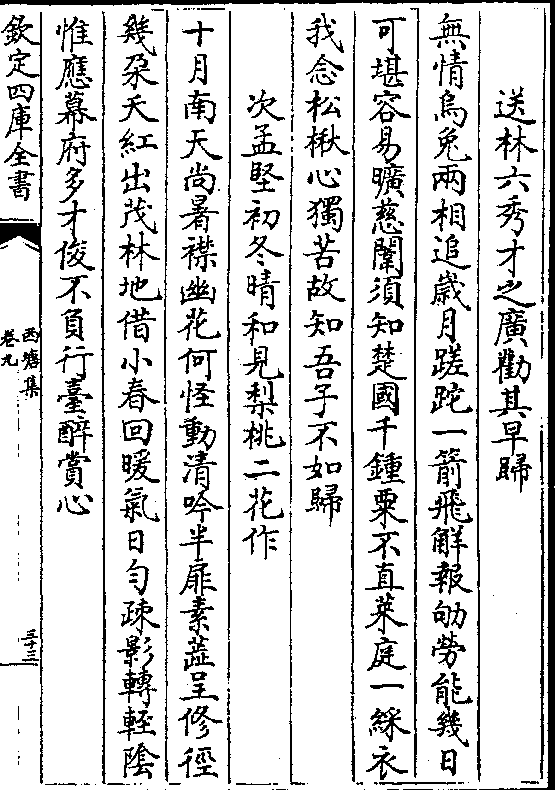 送林六秀才之廣勸其早歸
無情烏兔兩相追歲月蹉跎一箭飛解報劬勞能幾日
可堪容易曠慈闈須知楚國千鍾粟不直萊庭一綵衣
我念松楸心獨苦故知吾子不如歸
次孟堅初冬晴和見梨桃二花作
十月南天尚暑襟幽花何怪動清吟半扉素蕋呈修徑
幾朶夭紅出茂林地借小春回暖氣日勻疎影轉輕陰
惟應幕府多才俊不負行臺醉賞心
欽定四庫全書
西塘集
卷九
三十三